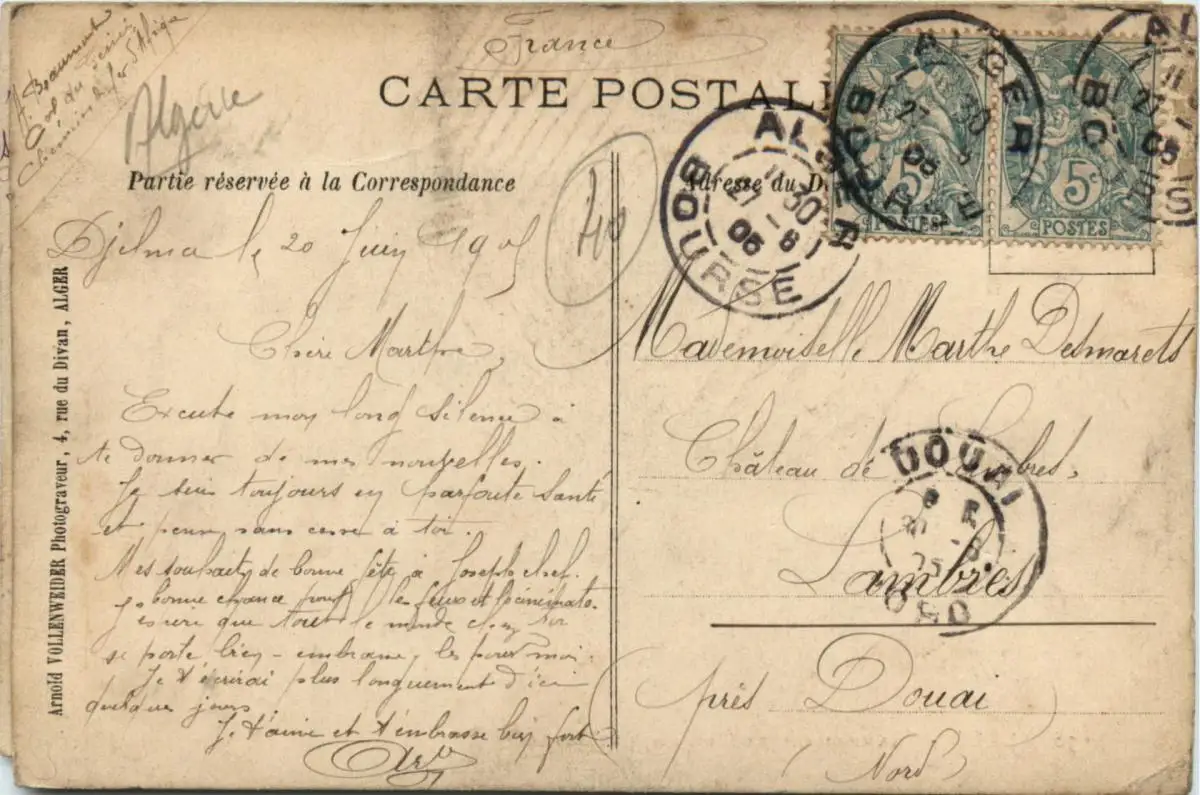 France
J. Beaumont
Col du
Chemins de fer d'Afrique
Algerie
CARTE POSTALE
Partie réservée à la Correspondance
Adresse du D
40
ALGER
11 30
27 - 6
05
BOURSE
ALGER
30
27
05
BOURSE
5c
POSTES
5c
POSTES
27
05
Djelma le 20 Juin 1905
Chère Marthe,
Excuse mon long silence à
te donner de mes nouvelles.
Je suis toujours en parfaite santé
et pense sans cesse à toi.
Mes souhaits de bonne fête à Joseph
bonne chance pour le feux et
j'espère que tout le monde chez toi
se porte bien - embrasse les pour moi.
Je t'écrirai plus longuement d'ici
quelques jours.
Je t'aime et t'embrasse bien fort
Mademoiselle Marthe Desmarets
Château de Lambres,
Lambres
près Douai
(Nord)
DOUAI
NORD
Arnold VOLLENWEIDER Photograveur, 4, rue du Divan, ALGER